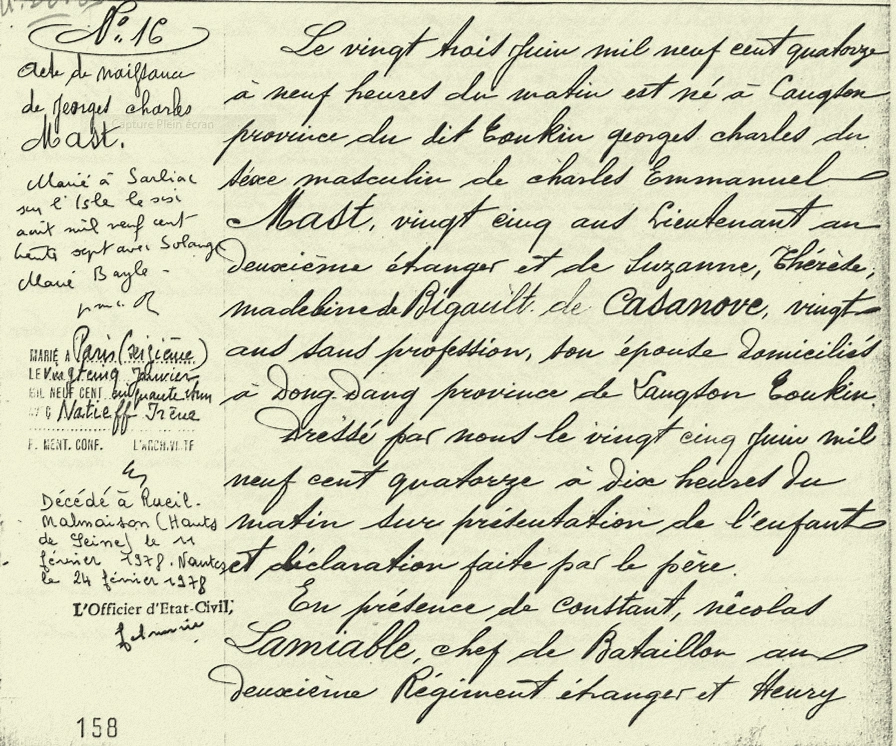 N° 16
Acte de naissance
de georges charles
Mast.
Marié à Sarliac
sur l'Isle le six
août mil neuf cent
trente sept avec Solange
Marie Bayle -
MARIÉ A Paris (seizième)
LE vingt cinq Janvier
MIL NEUF CENT cinquante et un
AVEC Natieff Irène
P. MENT. CONF. L'ARCHIVISTE
Décédé à Rueil-
Malmaison (Hauts
de Seine) le 11
février 1978. Nantes
le 24 février 1978
L'Officier d'Etat-Civil,
158
Capture Plein écran
Le vingt trois Juin mil neuf cent quatorze
à neuf heures du matin est né à Langson
province du dit Tonkin georges charles du
séxe masculin de charles Emmanuel
Mast, vingt cinq ans Lieutenant au
deuxième étranger et de Suzanne, Thérèse,
madeleine de Bigault de Casanove, vingt
ans sans profession, son épouse domiciliés
à Dong.Dang province de Langson Tonkin.
Dressé par nous le vingt cinq Juin mil
neuf cent quatorze à dix heures du
matin sur présentation de l'enfant
et déclaration faite par le père.
En présence de constant, nicolas
Lamiable, chef de Bataillon au
deuxième Régiment étranger et Henry